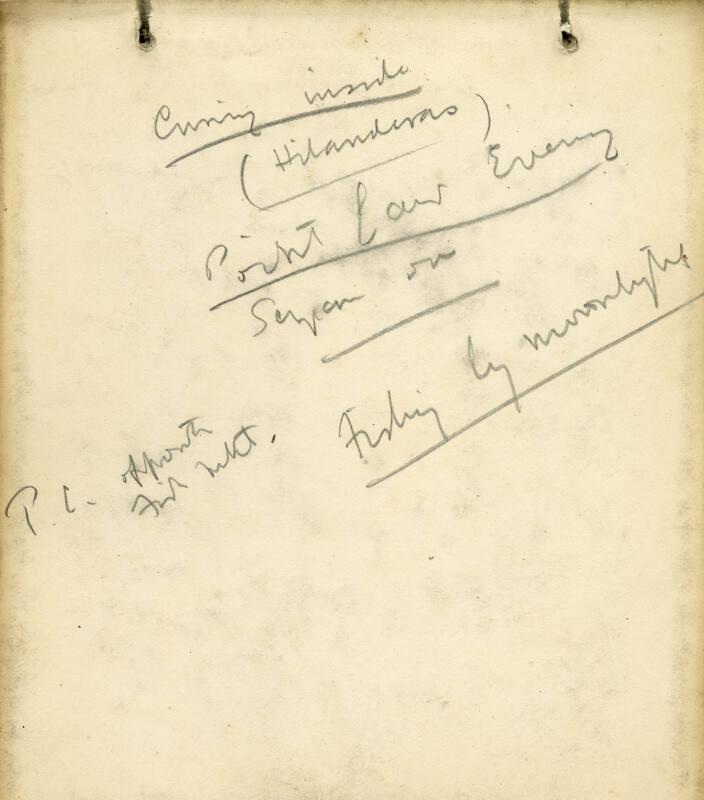 Curing inside
(Hilanderas)
Point Law Evening
on
Fishing by moonlight
P. C. opposite
Fish Mkt.